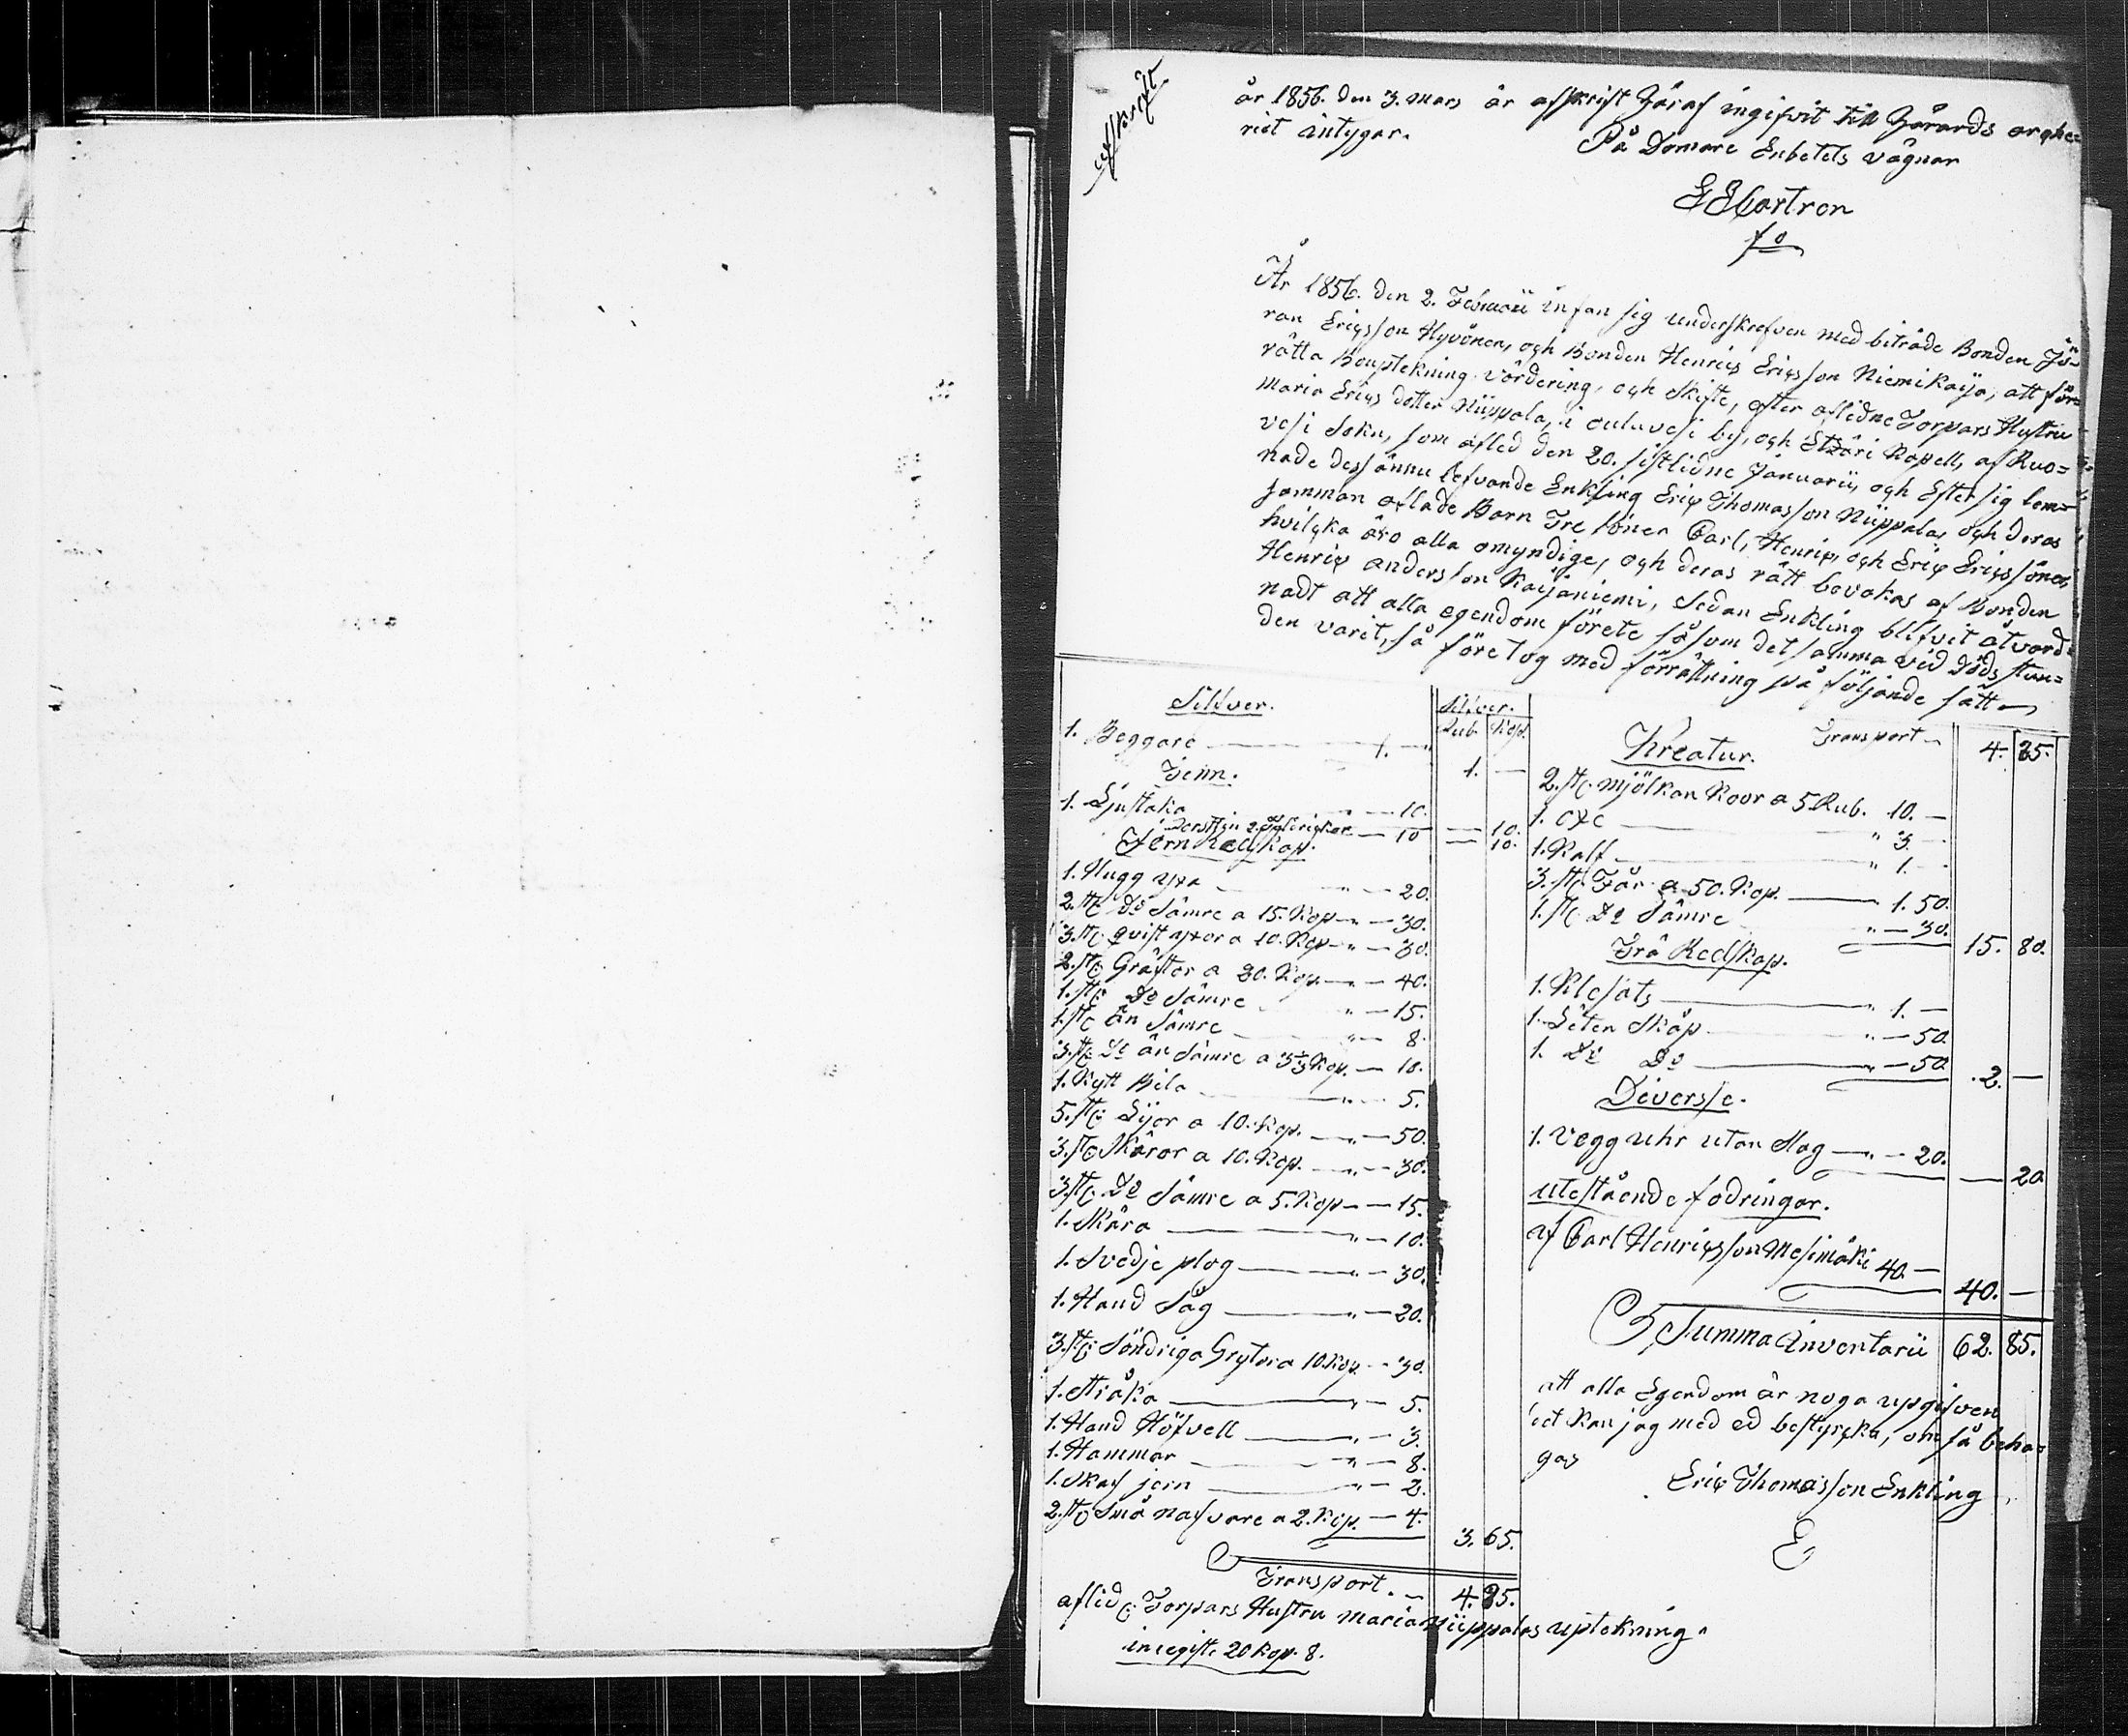 afskrift
år 1856. den 3. Mars är afskrift häraf ingifvit till härards arche=
viet intygar.
På Domare Embetets vägnar
fo
År 1856. den 2. Februarii infan sig underskrefven med biträde Bonden Jö=
ran Ericsson Hyvönen, och Bonden Henrics Ericsson Niemikaija, att för=
rätta Bouptekning värdering, och Skifte, efter aflidne Torpars Hustru
Maria Erics dotter Niippala, i Ouluvesi by, och Etzäri Kapell, af Ruo=
vesi Sokn, som afled den 20. sistlidne Januarii, och Efter sig lem=
nade dess ännu lefvande Enkling Eric Thomasson Niippala, och deras
samman aflade Barn Tre söner Carl, Henric, och Eric Ericssöner,
hvilcka äro alla omyndige, och deras rätt bevakas af Bonden
Henric andersson Kaijaniemi, Sedan Enkling blifvit åtvard=
nadt att alla egendom förete så som det samma vid döds stun=
den varit, så företog med förrättning på följande sätt
Silfver.
Silfver.
Rub. Kop.
1. Beggare 1. —
1. —
Tenn.
1. Ljustaka " — 10.
— 10.
10 — 10.
Jern Redskap.
1. Hugg yxa " — 20.
2. st. Do Sämre a 15. Kop " — 30.
3. st. qvist yxor a 10. Kop " — 30.
2. st. Gräftor a 20. Kop. " — 40.
1. st. Do Sämre " — 15.
1. st. än Sämre " 8.
3. st. Do än Sämre a 3⅓ Kop. — 10.
1. Kytt Bila " 5.
5. st. Lijor a 10. Kop. " — 50.
3. st. Skäror a 10. Kop. " — 30.
3. st. Do Sämre a 5. Kop — 15.
1. Skära " — 10.
1. Svedje plog " — 30.
1. Hand Såg " — 20.
3. st. Söndriga Grytor a 10 Kop. — 30.
1. Hand Höfvell " — 3.
1. Hammar " — 8.
1. Skaf jern " — 2.
2. st. Små nafvare a 2. Kop. — 4.
3. 65.
Transport. — 4. 85.
Transport — 4. 85.
Kreatur.
2. st. mjölkan Koor a 5 Rub. 10. —
1. oxe " 3. —
1. Kalf " 1. —
3. st. Får a 50. Kop. 1. 50.
1. st. Do Sämre " — 30.
15. 80.
Trä Redskap.
1. Klesäts " 1. —
1. Liten Skåp " — 50.
1. Do Do " — 50
2. —
Diversse.
1. Vegg uhr utan Slag " — 20.
— 20
utestående fodringar.
af Carl Henricsson Mesimäki 40. —
40. —
Summa Inventarii 62. 85.
att alla Egendom är noga upgifven
det kan jag med ed bestyrcka, om så beha=
gas
Eric Thomasson Enkling
aflid. Torpars Hustru Maria Niippalas uptekning.